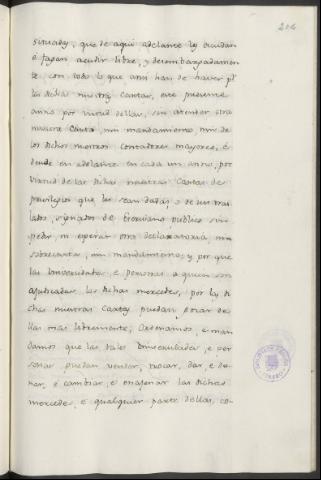 204
situados, que de aqui adelante les acudan
é fagan acudir libre, y desembargadamen-
te con todo lo que ansi han de haver pr.
las dichas nuestras Cartas, este presente
anno por virtud dellas, sin atender otra
nuestra Carta nin mandamiento nin de
los dichos nuestros contadores mayores, é
dende en adelante en cada un anno, por
virtud de las dichas nuestras Cartas de
previlegios que les sean dadas o de sus tras-
lados, signados de Escrivano publico sin
pedir, ni esperar otra declaratoria nin
sobrecarta, nin mandamiento; y por que
las Universidades, é personas a quien son
ajudicadas las dichas mercedes, por las di-
chas nuestras Cartas puedan gozar de-
llas mas libremente, Ordenamos, e man-
damos que las tales Universidades, e per-
sonas puedan vender, trocar, dar, e do-
nar, é cambiar, e enagenar las dichas
mercedes, e qualquier parte dellas, co-